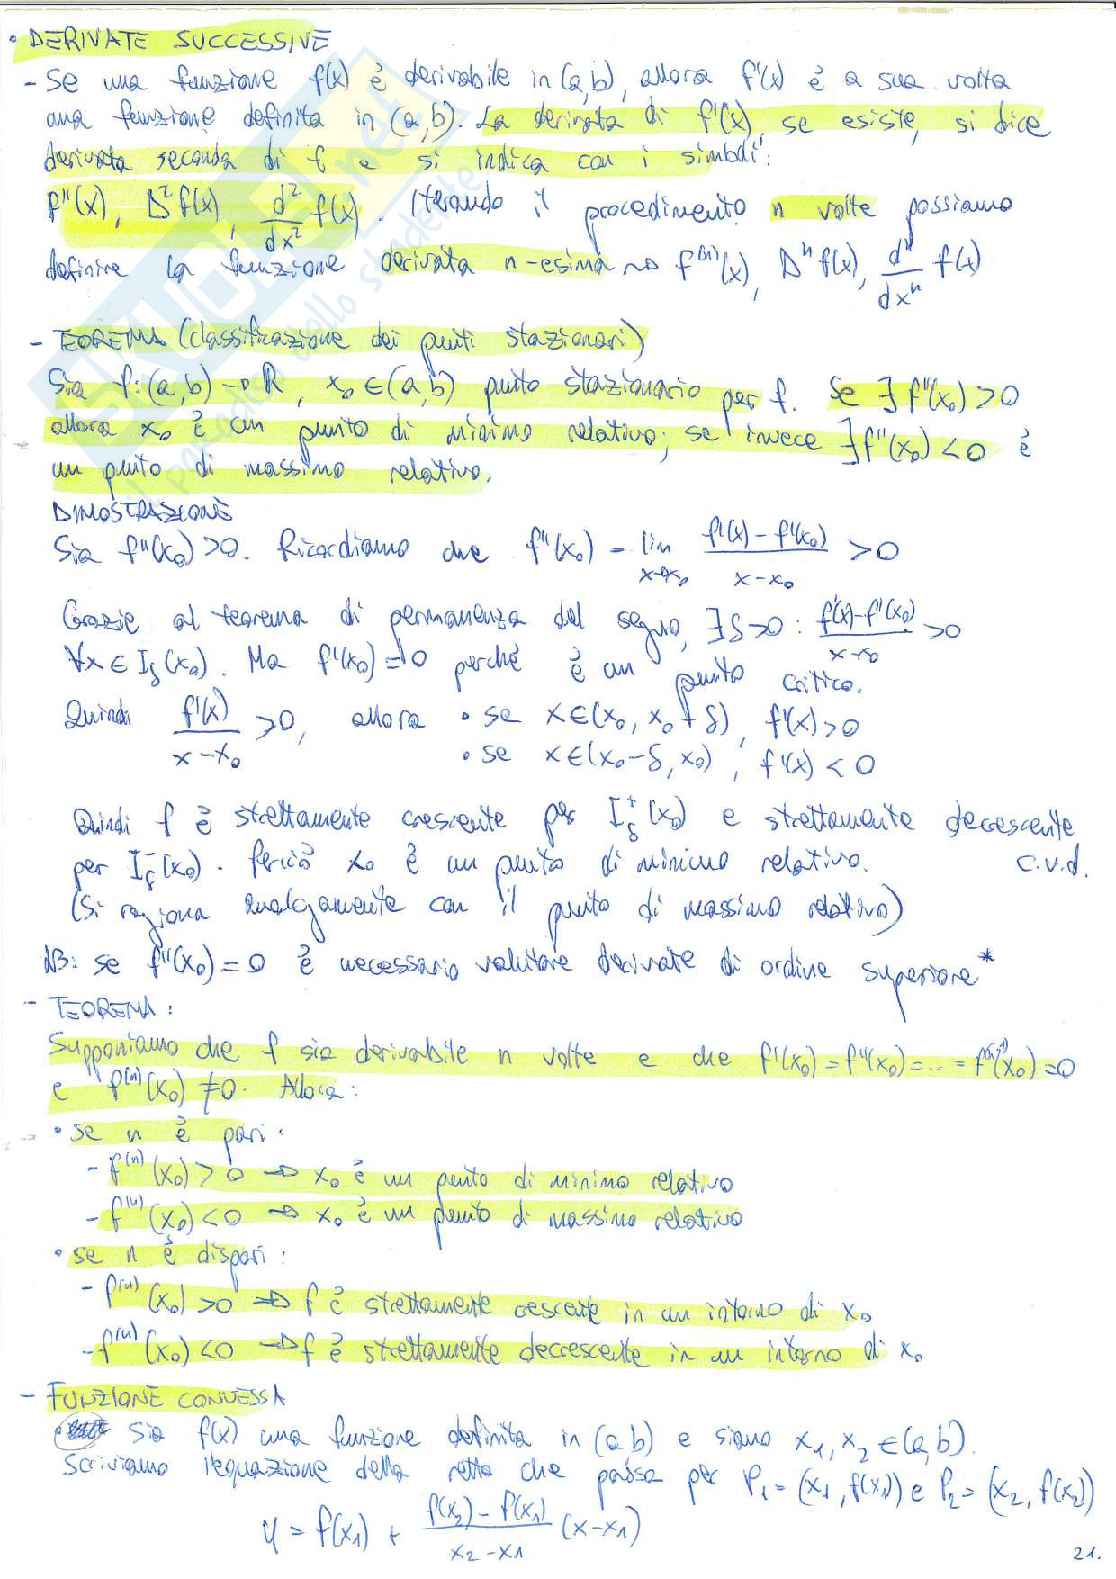 • DERIVATE SUCCESSIVE
- Se una funzione f(x) è derivabile in (a,b), allora f'(x) è a sua volta
una funzione definita in (a,b). La derivata di f'(x), se esiste, si dice
derivata seconda di f e si indica con i simboli:
f''(x), D²f(x), d²/dx² f(x). Iterando il procedimento n volte possiamo
definire la funzione derivata n-esima → f⁽ⁿ⁾(x), Dⁿf(x), dⁿ/dxⁿ f(x)
- TEOREMA (classificazione dei punti stazionari)
Sia f:(a,b)→R, x₀∈(a,b) punto stazionario per f. Se ∃f''(x₀)>0
allora x₀ è un punto di minimo relativo; se invece ∃f''(x₀)<0 è
un punto di massimo relativo.
DIMOSTRAZIONE
Sia f''(x₀)>0. Ricordiamo che f''(x₀) = lim x→x₀ (f'(x)-f'(x₀))/(x-x₀) >0
Grazie al teorema di permanenza del segno, ∃δ>0: (f'(x)-f'(x₀))/(x-x₀) >0
∀x∈I_δ(x₀). Ma f'(x₀)=0 perché è un punto critico.
Quindi f'(x)/(x-x₀) >0, allora • se x∈(x₀, x₀+δ), f'(x)>0
• se x∈(x₀-δ, x₀), f'(x)<0
Quindi f è strettamente crescente per I_δ⁺(x₀) e strettamente decrescente
per I_δ⁻(x₀). Perciò x₀ è un punto di minimo relativo. c.v.d.
(Si ragiona analogamente con il punto di massimo relativo)
NB: se f''(x₀)=0 è necessario valutare derivate di ordine superiore*
- TEOREMA:
Supponiamo che f sia derivabile n volte e che f'(x₀)=f''(x₀)=...=f⁽ⁿ⁻¹⁾(x₀)=0
e f⁽ⁿ⁾(x₀)≠0. Allora:
• se n è pari:
- f⁽ⁿ⁾(x₀)>0 → x₀ è un punto di minimo relativo
- f⁽ⁿ⁾(x₀)<0 → x₀ è un punto di massimo relativo
• se n è dispari:
- f⁽ⁿ⁾(x₀)>0 → f è strettamente crescente in un intorno di x₀
- f⁽ⁿ⁾(x₀)<0 → f è strettamente decrescente in un intorno di x₀
- FUNZIONE CONVESSA
Sia f(x) una funzione definita in (a,b) e siano x₁,x₂∈(a,b).
Scriviamo l'equazione della retta che passa per P₁=(x₁,f(x₁)) e P₂=(x₂,f(x₂))
y = f(x₁) + (f(x₂)-f(x₁))/(x₂-x₁) (x-x₁)
21.